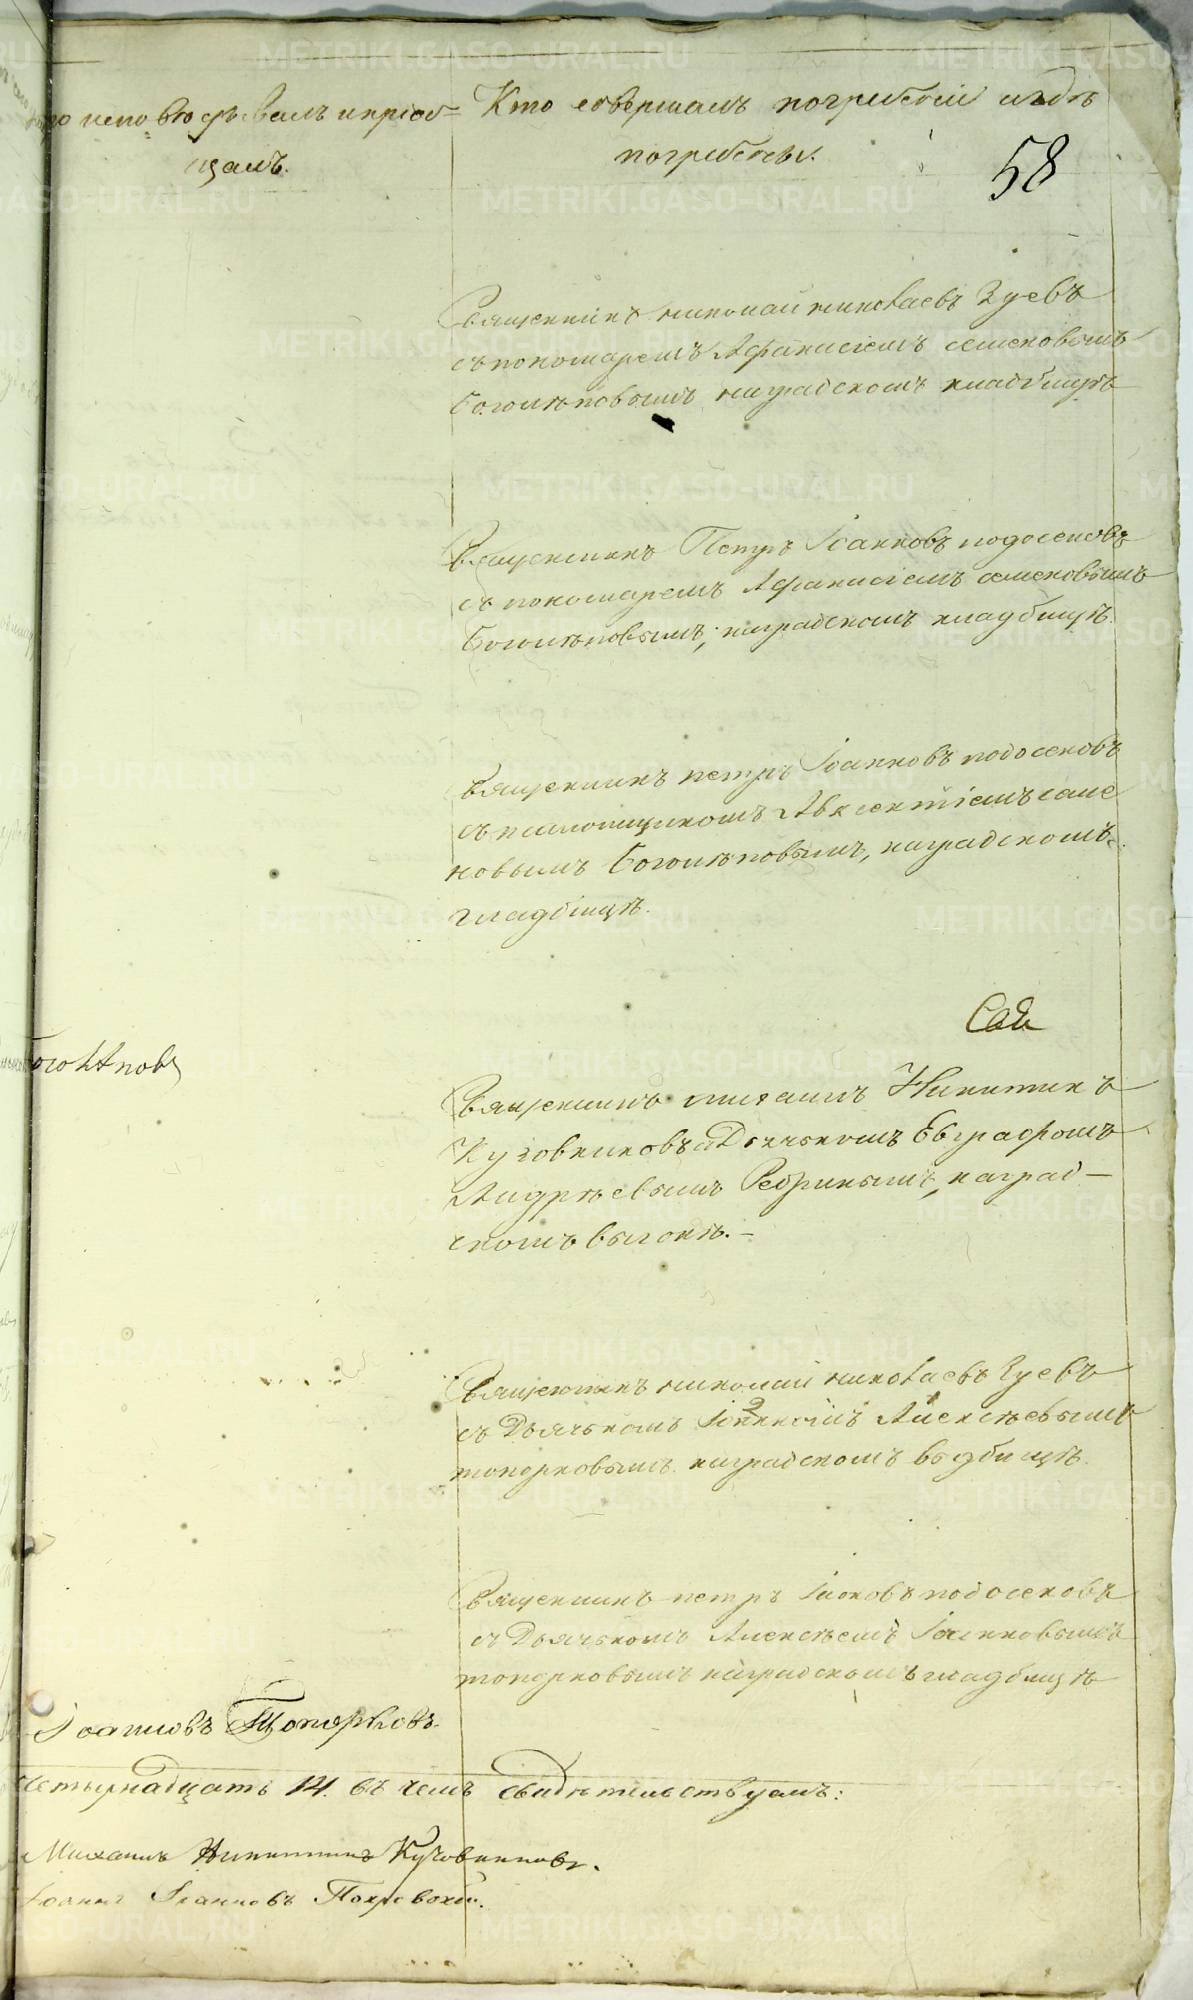 исповѣдывалъ и пріоб=
щалъ.
Кто совершалъ погребеніе и гдѣ
погребены.
58
Священникъ Николай Николаевъ Зуевъ
съ пономаремъ Афанасіемъ Семеновымъ
Боголѣповымъ на градскомъ кладбищѣ
Священникъ Петръ Іоанновъ Подосеновъ
съ пономаремъ Афанасіемъ Семеновымъ
Боголѣповымъ, на градскомъ кладбищѣ.
Священникъ Петръ Іоанновъ Подосеновъ
съ псаломщикомъ Авксентіемъ Семе
новымъ Боголѣповымъ, на градскомъ
кладбищѣ.
Боголѣповъ
Священникъ Михаилъ Никитинъ
Кузовниковъ съ Дьячькомъ Евграфомъ
Андрѣевымъ Ребринымъ, на град-
скомъ выгонѣ.-
Священникъ Николай Николаевъ Зуевъ
съ Дьячькомъ Іоанномъ Алексѣевымъ
Топорковымъ на градскомъ кладбищѣ.
Священникъ Петръ Іоановъ Подосеновъ
съ Дьячькомъ Алексѣемъ Іоанновымъ
Топорковымъ на градскомъ кладбищѣ
Іоанновъ Топорковъ.
Четырнадцать 14. въ чемъ свидѣтельствуемъ:
Михаилъ Никитинъ Кузовниковъ.
Іоаннъ Іоанновъ Покровскій.
METRIKI.GASO-URAL.RU